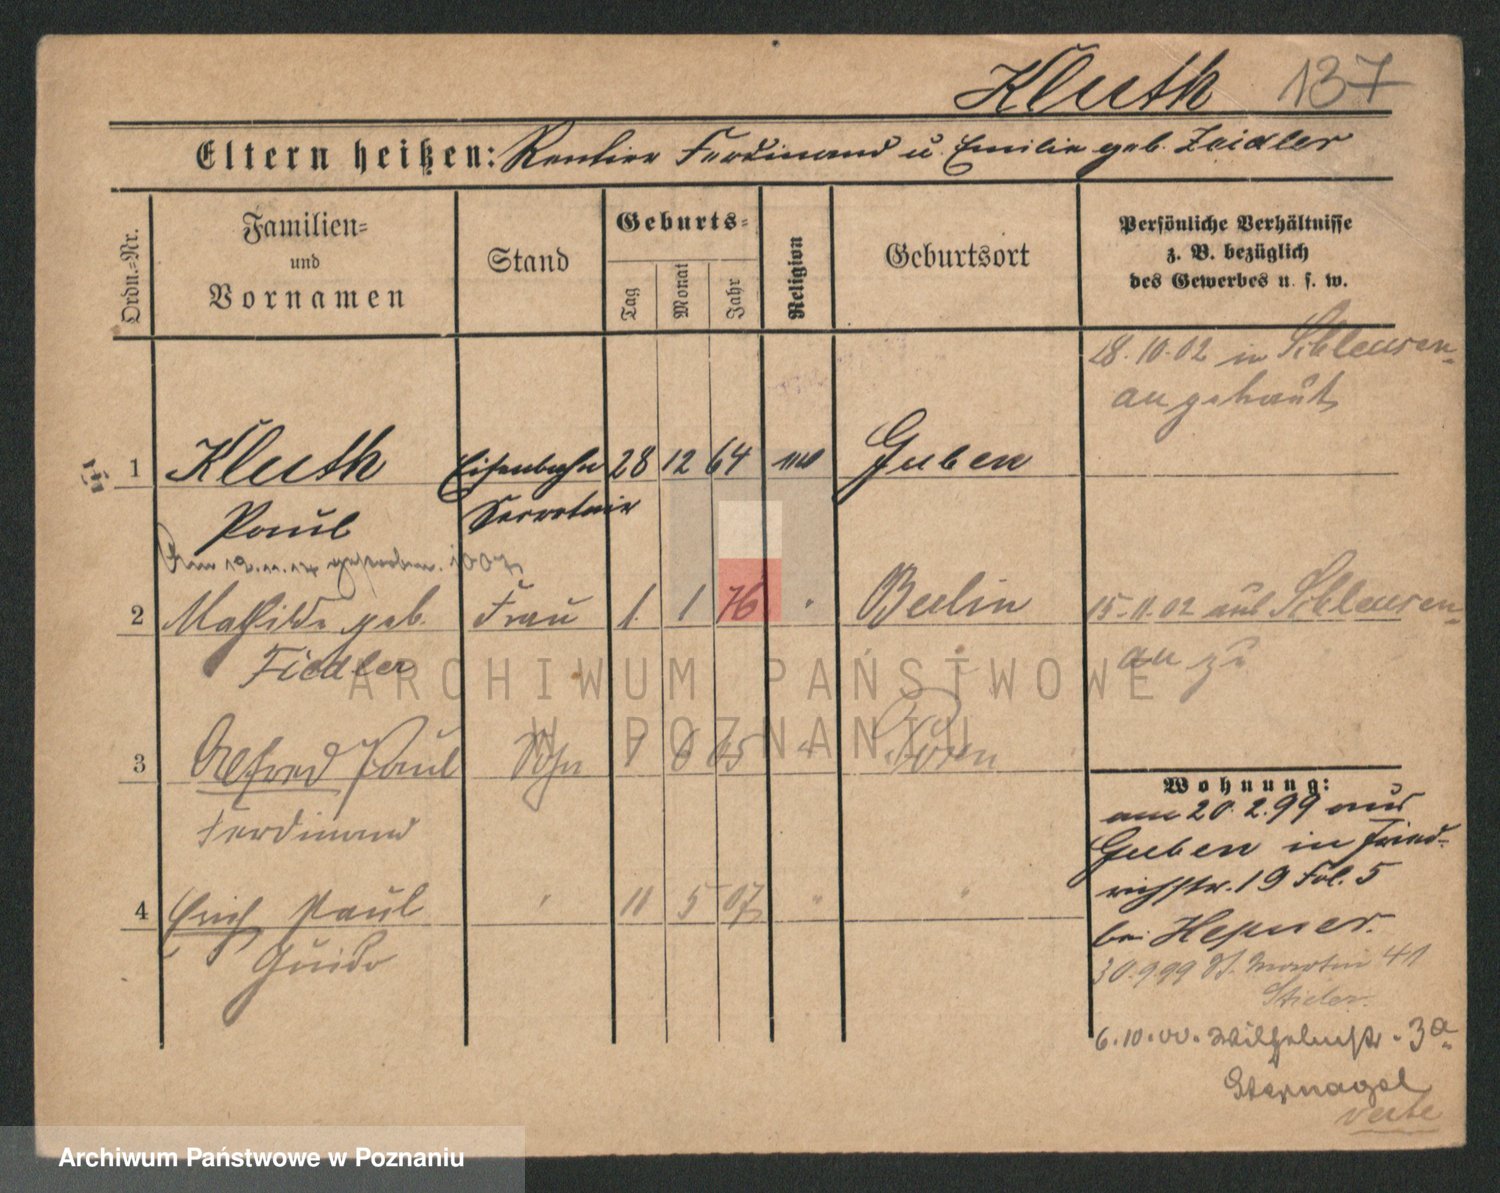 Kluth 137
Eltern heißen: Rentier Ferdinand u. Emilie geb. Zeidler
Ordn.-Nr.
Familien-
und
Vornamen
Stand
Geburts-
Tag Monat Jahr
Religion
Geburtsort
Persönliche Verhältnisse
z. B. bezüglich
des Gewerbes u. s. w.
28.10.02 in Schleusen-
au getraut
1 Kluth Eisenbahn 28 12 64 Guben
Paul Secretair
Am gestorben. 1007
2 Mathilde geb. Frau 1. 1 76 " Berlin 15.11.02 aus Schleusen-
Fiedler au zu
3 Alfred Paul Sohn 1 6 05 " Posen
Ferdinand
4 Erich Paul " 11 5 07 " "
Guido
Wohnung:
am 20.2.99 aus
Guben in Fried-
richstr. 19 Fol. 5
bei Hepner.
30.9.99 St. Martin 41
Stieler.
6.10.00. Wilhelmstr. 3a
Sternagel
verte
ARCHIWUM PAŃSTWOWE
W POZNANIU
Archiwum Państwowe w Poznaniu